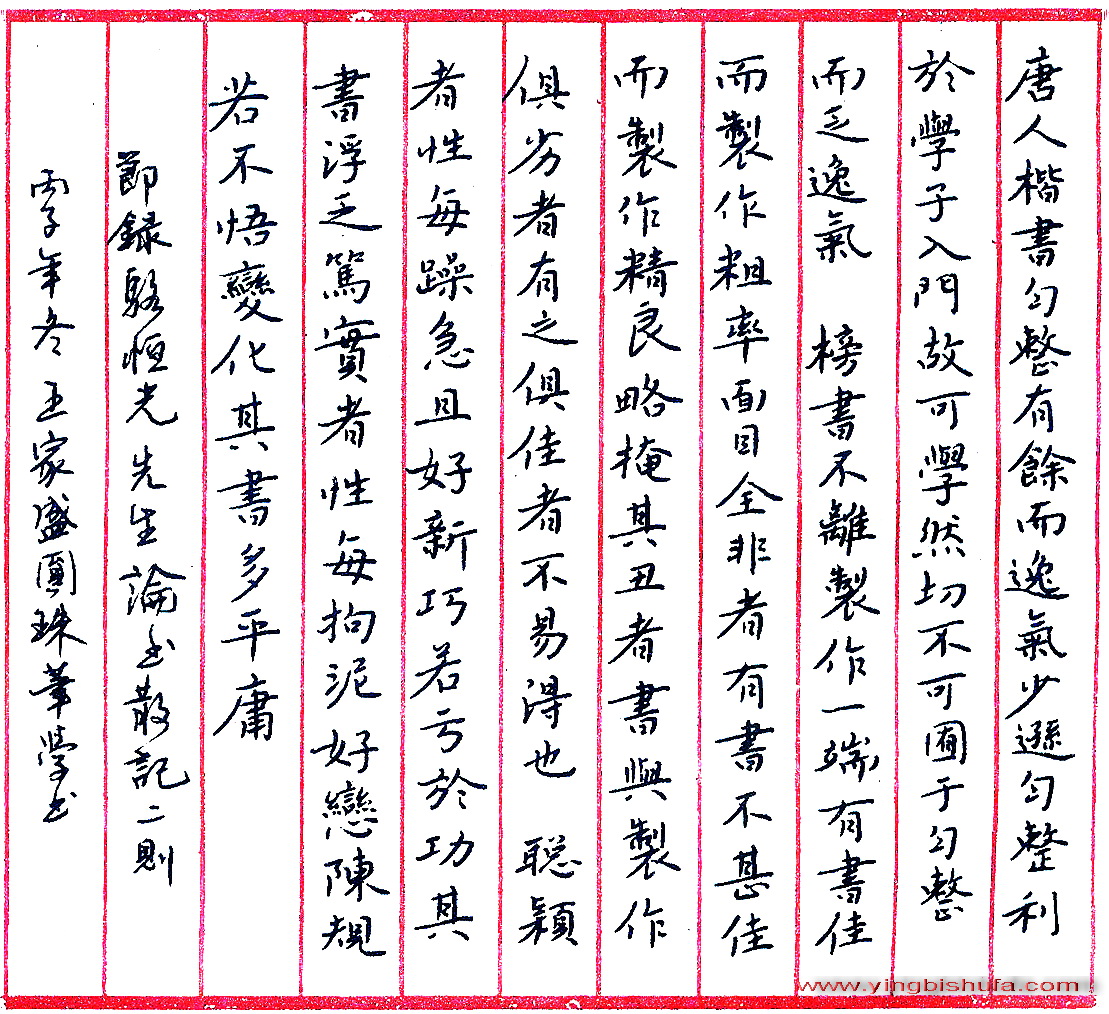 唐人楷書勻整有餘而逸氣少遜勻整利
於學子入門故可學然切不可囿于勻整
而乏逸氣　榜書不離製作一端有書佳
而製作粗率面目全非者有書不甚佳
而製作精良略掩其丑者書與製作
俱劣者有之俱佳者不易得也　聪穎
者性每躁急且好新巧若亏於功其
書浮乏篤實者性每拘泥好戀陳規
若不悟變化其書多平庸
節録駱恒光先生論书散記二則
丙子年冬王家盛圓珠筆學书
www.yingbishufa.com